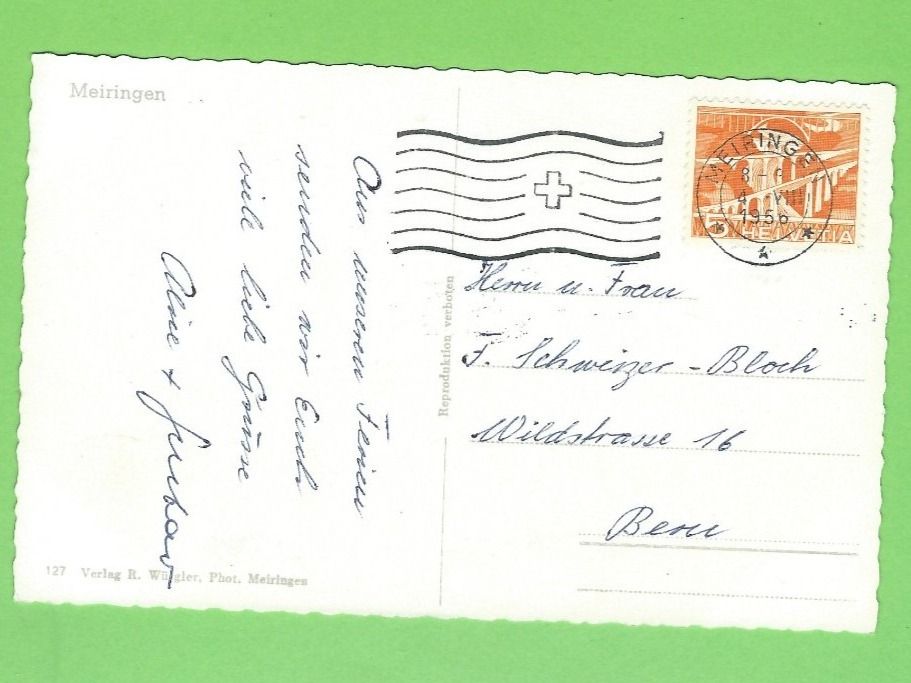 Meiringen
Aus unseren Ferien
senden wir Euch
viele liebe Grüsse
Aline + Gustav
127 Verlag R. Würgler, Phot. Meiringen
Reproduktion verboten
MEIRINGEN
1956
5 HELVETIA
Herrn u. Frau
F. Schweizer - Bloch
Wildstrasse 16
Bern